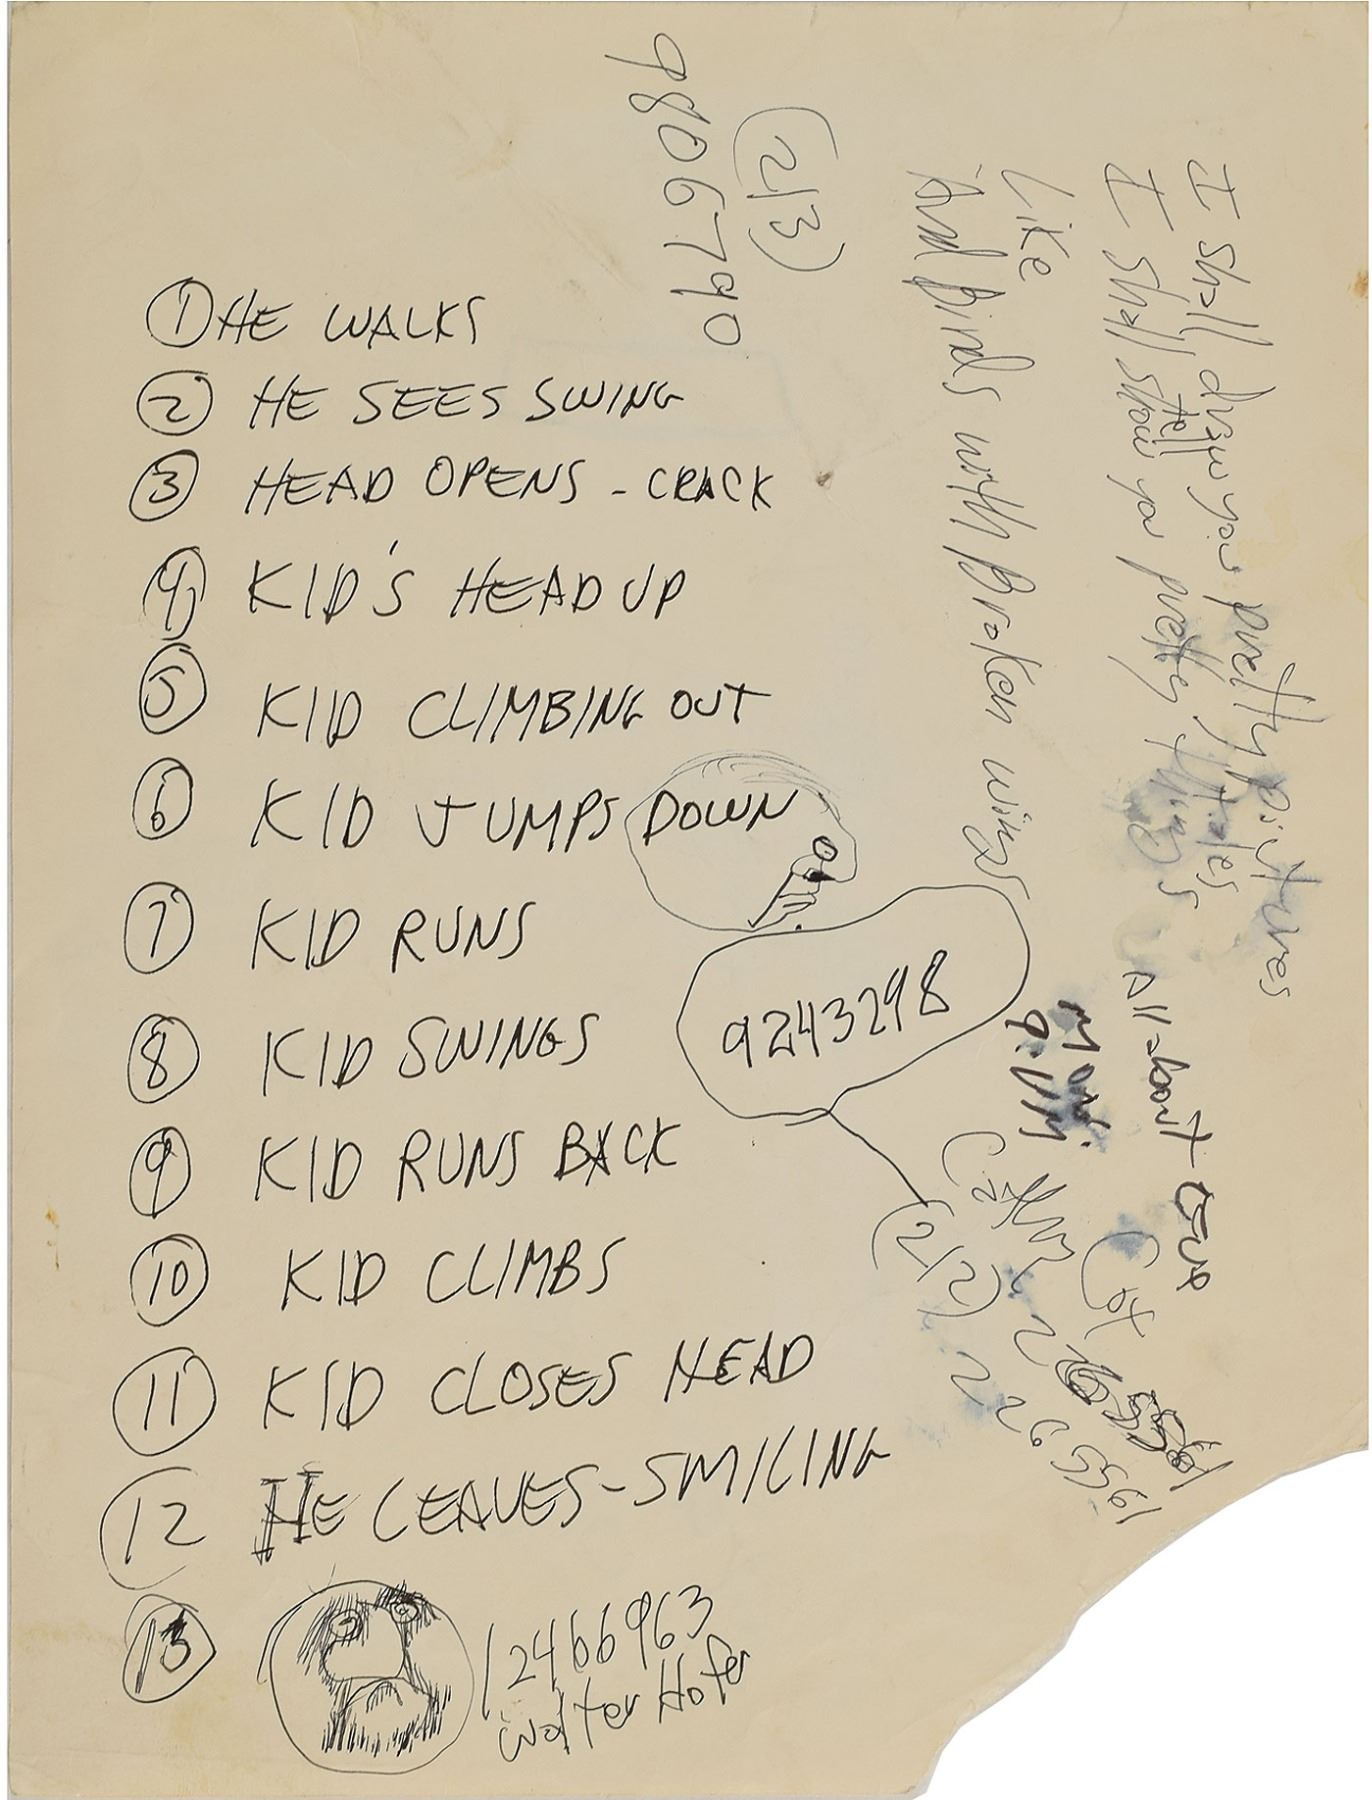 ① HE WALKS
② HE SEES SWING
③ HEAD OPENS - CRACK
④ KID'S HEAD UP
⑤ KID CLIMBING OUT
⑥ KID JUMPS DOWN
⑦ KID RUNS
⑧ KID SWINGS
⑨ KID RUNS BACK
⑩ KID CLIMBS
⑪ KID CLOSES HEAD
⑫ HE LEAVES - SMILING
⑬
12466963
Walter Hofer
9243298
(212)
(213)
9806790
I shall draw you pretty pictures
tell tales
I shall show you pretty things All about
Like
And Birds with Broken wings
Cathy Cox
2265561